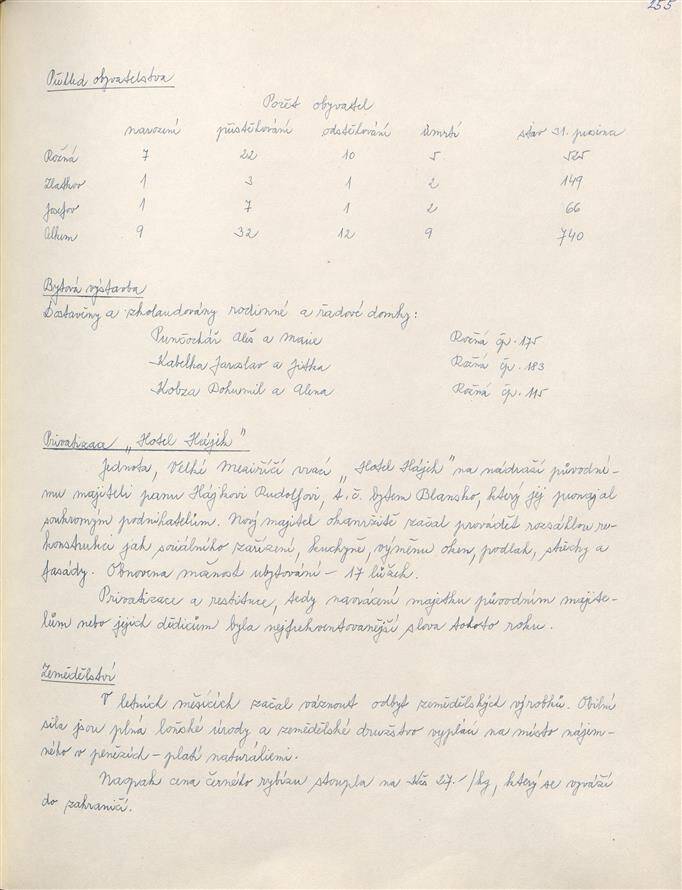 255
Přehled obyvatelstva
Počet obyvatel
narození přistěhování odstěhování úmrtí stav 31. prosince
Rožná 7 22 10 5 525
Zlatkov 1 3 1 2 149
Josefov 1 7 1 2 66
Celkem 9 32 12 9 740
Bytová výstavba
Dostavěny a zkolaudovány rodinné a řadové domky:
Punčochář Aleš a Marie Rožná čp. 175
Kabelka Jaroslav a Jitka Rožná čp. 183
Kobza Bohumil a Alena Rožná čp. 115
Privatizace „Hotel Hájek"
Jednota, Velké Meziříčí vrací „Hotel Hájek" na nádraží původní-
mu majiteli panu Hájkovi Rudolfovi, t.č. bytem Blansko, který jej pronajal
soukromým podnikatelům. Nový majitel okamžitě začal provádět rozsáhlou re-
konstrukci jak sociálního zařízení, kuchyně, výměnu oken, podlah, střechy a
fasády. Obnovena možnost ubytování - 17 lůžek.
Privatizace a restituce, tedy navrácení majetku původním majite-
lům nebo jejich dědicům byla nejfrekventovanější slova tohoto roku.
Zemědělství
V letních měsících začal váznout odbyt zemědělských výrobků. Obilní
sila jsou plná loňské úrody a zemědělské družstvo vyplácí na místo nájem-
ného v penězích - platí naturáliemi.
Naopak cena černého rybízu stoupla na Kčs 27.-/kg, který se vyváží
do zahraničí.